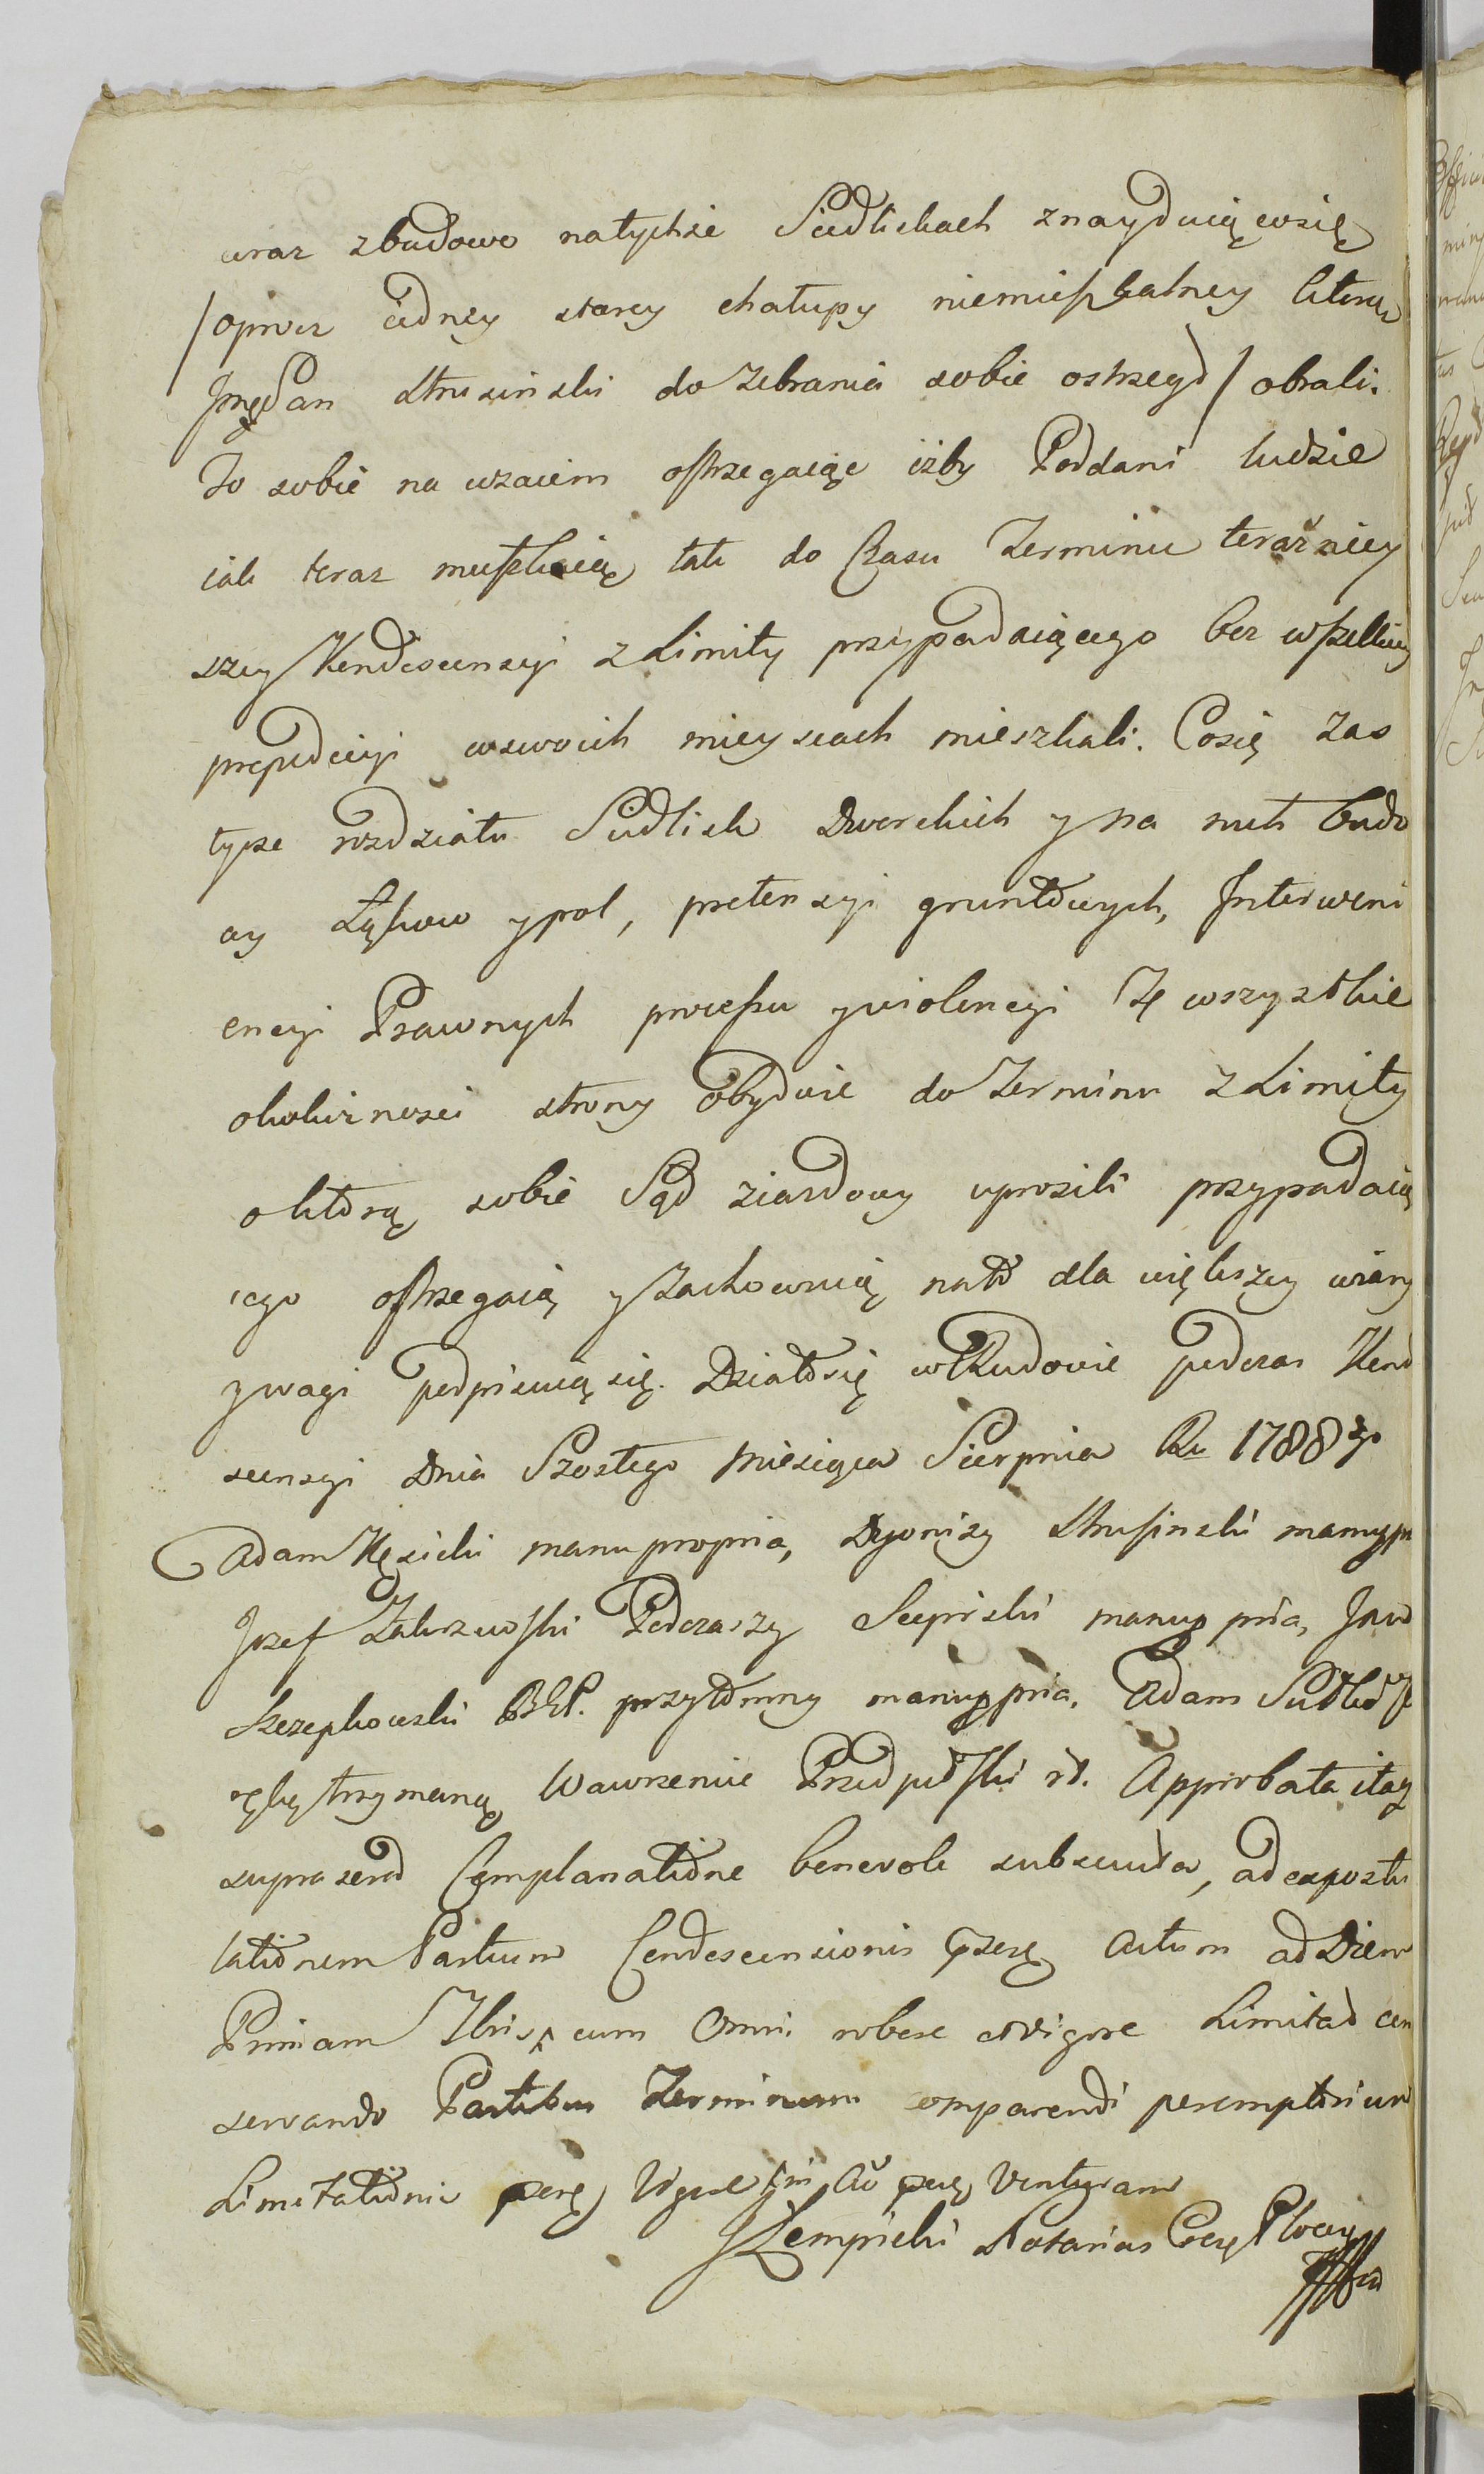 wraz zbudowo natychże Siedliskach znayduiącąsię
/oprocz iedney starey chałupy niemieszkalney ktorą
JmćPan Strusinski do Zebrania sobie ostrzegł/ obrali.
To sobie na wzaiem ostrzegaiąc iżby Poddani ludzie
iak teraz mieszkaią tak do Czasu Terminu teraźniey
szey Kondescensyi z Limity przypadaiącego bez wszelkiey
prepedicyi wswoich mieyscach mieszkali. Cosię zas
tycze rozdziału Siedlisk Dworskich y na nich budo
wy Łąkow ypol, pretensyi gruntowych, Interweni
encyi Prawnych processu yviolencyi Te wszystkie
okoliczności strony obydwie do Terminu z Limity
oktorą sobie Sąd ziazdowy uprosili przypadaią
cego ostrzegaią yZachowuią nato dla większey wiary
ywagi podpisuią się. Działosię wRudowie podczas Kond
scensyi Dnia Szostego Miesiąca Sierpnia Ru 1788go
Adam Kęsicki manu propria, Dyonizy Strusinski manu pp
Jozef Zakrzewski Podczaszy Sierpski manu ppria,
Szczepkowski BGP. przytomny manu ppria. Adam
rękę trzymaną Wawrzeniec Przedpełski rt. Approbata itaq
suprascrip Complanatione benevole subscripta, ad expostu
lationem Partium Condescensionis praese Actum ad Diem
Primam Xbris cum Omni robore et vigore Limitat con
servando Partibus Terminum comparendi peremptorium
Limitationis praese Vigore in Au
JZempicki Notarius Plocen